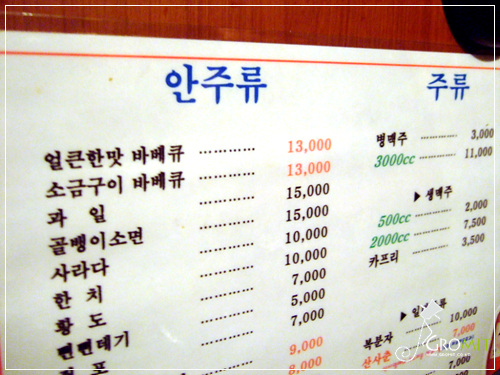 안주류
얼큰한맛 바베큐 ............... 13,000
소금구이 바베큐 ............... 13,000
과 일 ............... 15,000
골뱅이소면 ............... 15,000
사라다 ............... 10,000
한 치 ............... 10,000
황 도 ............... 7,000
5,000
포 ............... 7,000
9,000
8,000
주류
병맥주 ............... 3,000
3000cc ............... 11,000
▶ 생맥주
500cc ............... 2,000
2000cc ............... 7,500
카프리 ............... 3,500
▶
복분자 ............... 10,000
산사춘 ............... 7,000